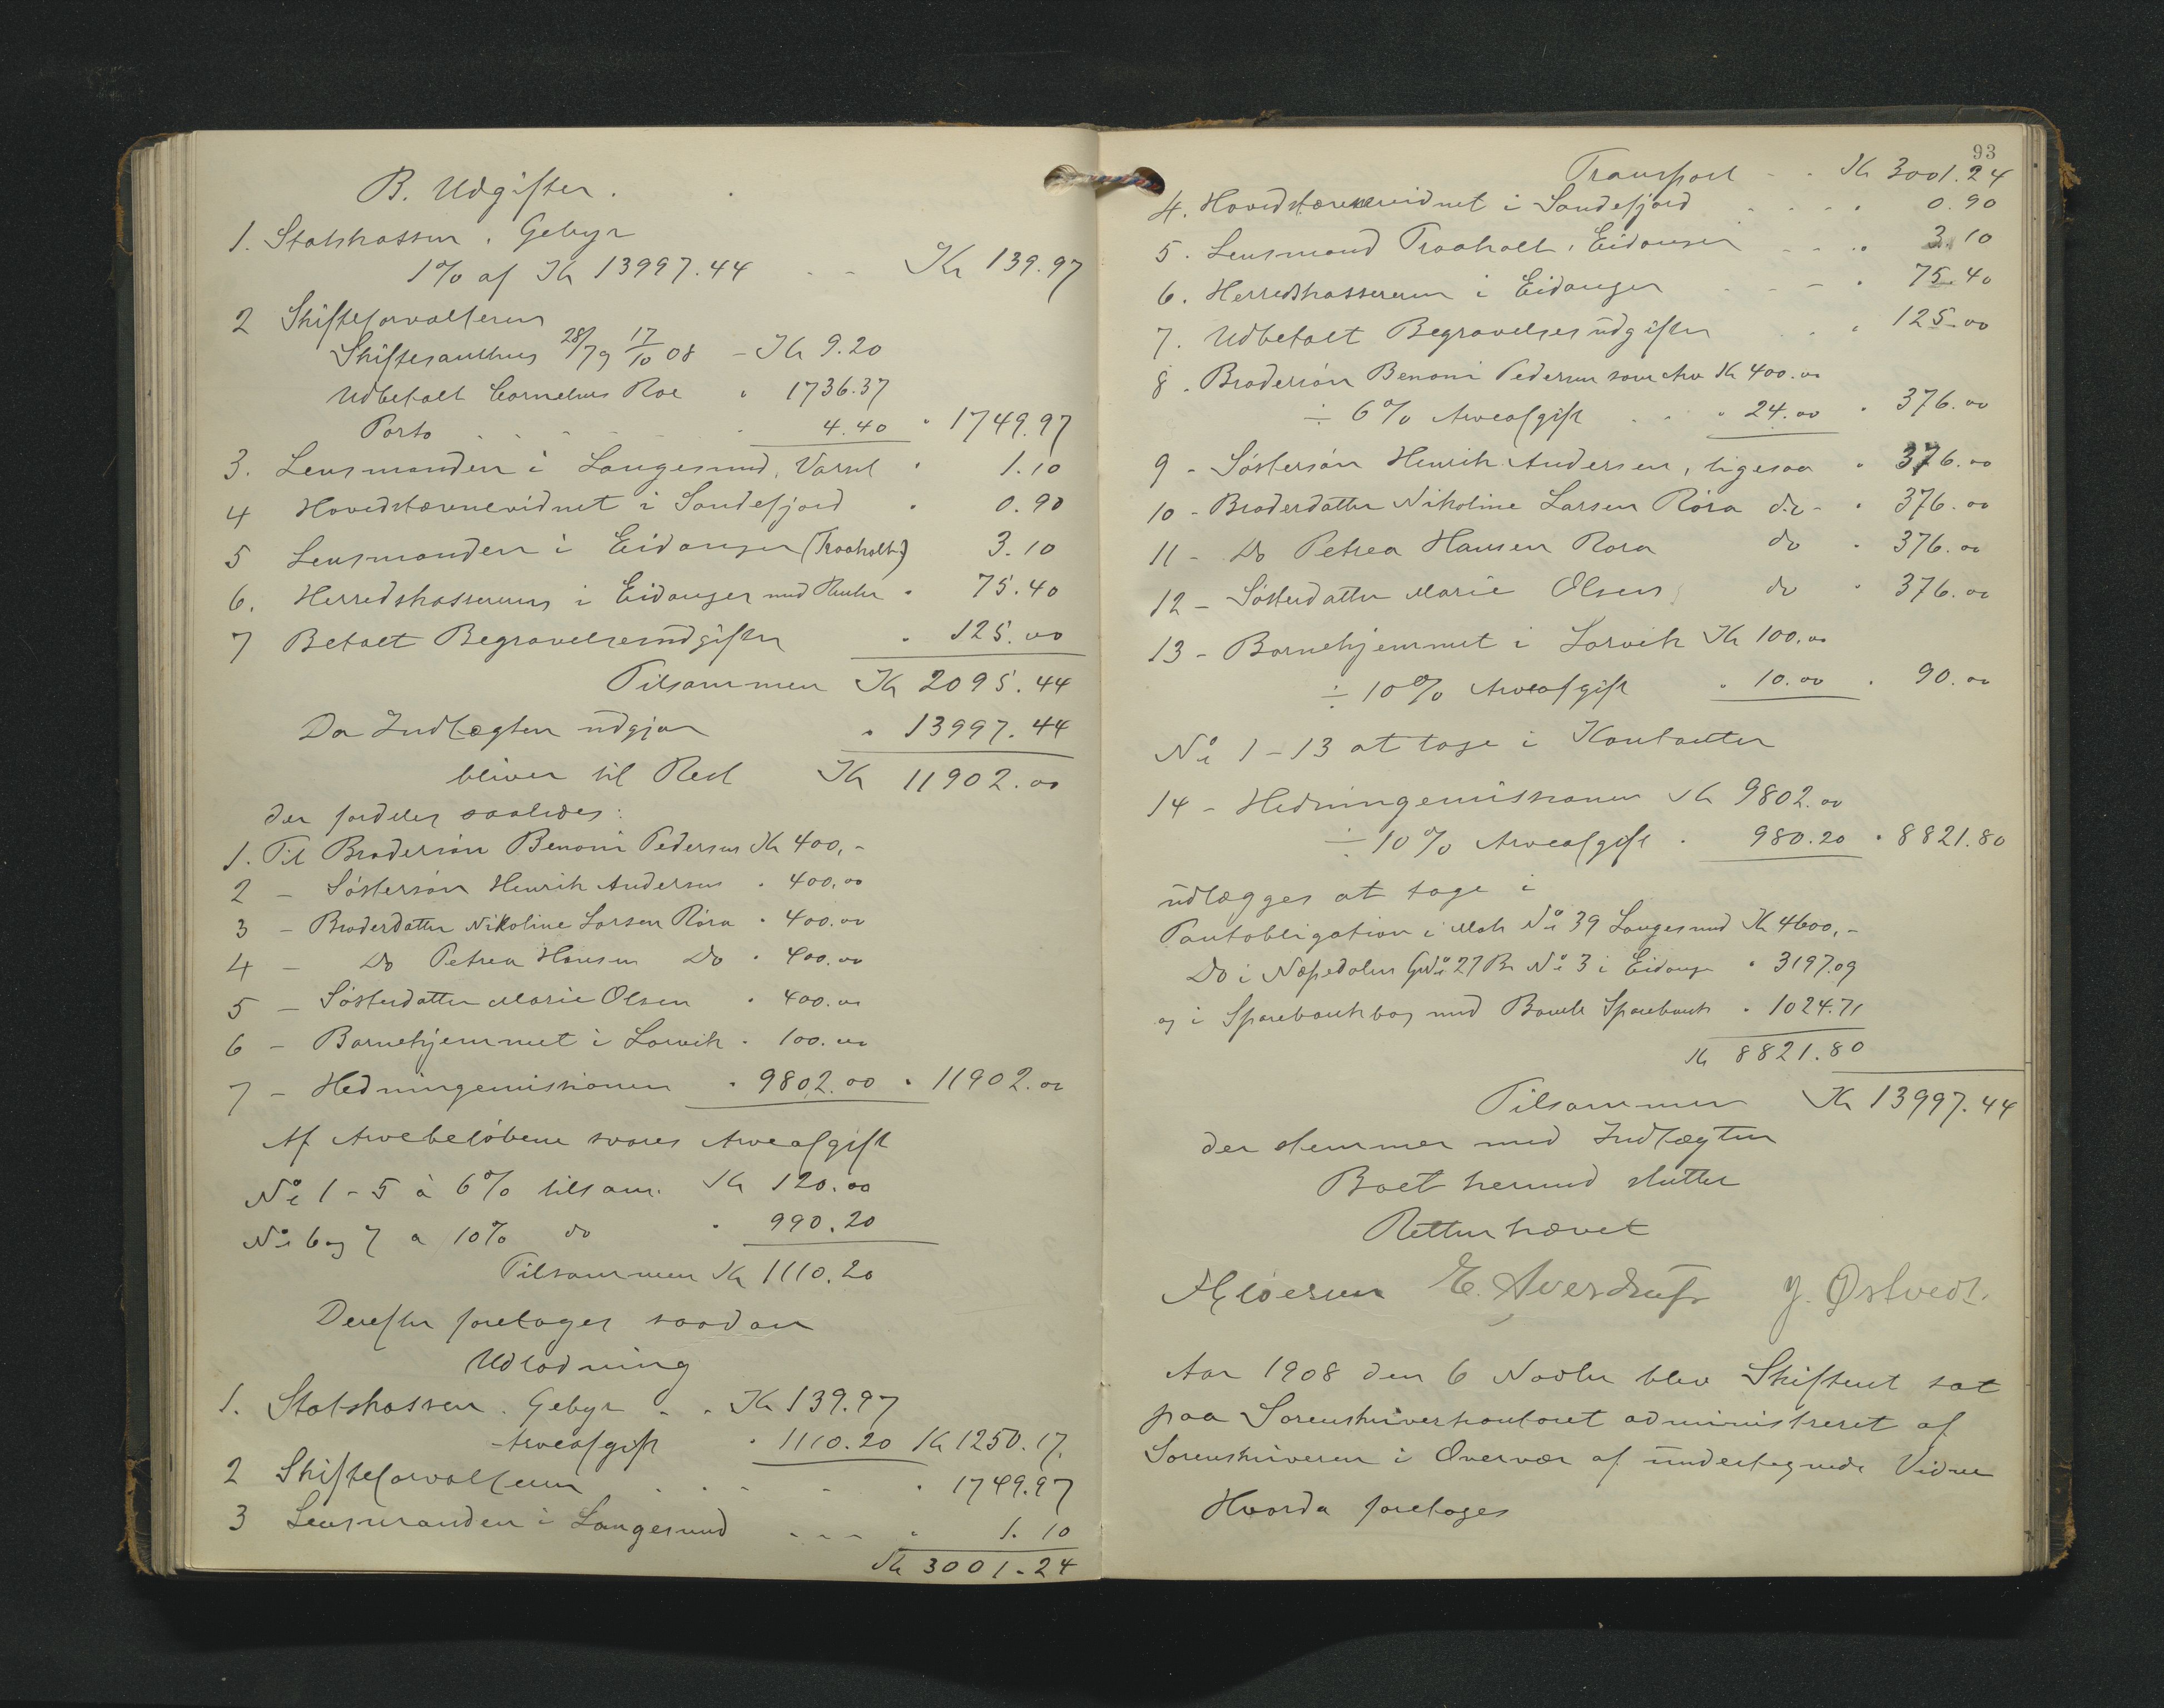 B. Udgifter.
1. Statskassen. Gebyr
1% af Kr 13997.44 - - Kr 139.97
2 Skifteforvalteren
Skiftesamling 28/7 og 17/10 08 - Kr 9.20
Udbetalt Cornelius Roe " 1736.37
Porto 4.40 " 1749.97
3. Lensmanden i Langesund, Varsel " 1.10
4 Hovedstævnevidnet i Sandefjord " 0.90
5 Lensmanden i Eidanger (Traaholt) 3.10
6. Herredskassereren i Eidanger med Renter " 75.40
7 Betalt Begravelsesudgifter " 125.00
Tilsammen Kr 2095.44
Da Indtægten udgjør " 13997.44
bliver til Rest Kr 11902.00
der fordeles saaledes:
1. Til Brodersøn Benoni Pedersen Kr 400,-
2 - Søstersøn Henrik Andersen " 400.00
3 - Broderdatter Nikoline Larsen Røra " 400.00
4 - Do Petrea Hansen Do " 400.00
5 - Søsterdatter Marie Olsen " 400.00
6 - Barnehjemmet i Larvik " 100.00
7 - Hedningemissionen " 9802.00 " 11902.00
Af Arvebeløbene svares Arveafgift
No 1-5 à 6% tilsam. Kr 120.00
No 6 og 7 a 10% do " 990.20
Tilsammen Kr 1110.20
Derefter foretages saadan
Udlodning
1. Statskassen. Gebyr . . Kr 139.97
Arveafgift " 1110.20 Kr 1250.17.
2 Skifteforvalteren " 1749.97
3 Lensmanden i Langesund - - - " 1.10
Kr 3001.24
93
Transport - - Kr 3001.24
4. Hovedstævnevidnet i Sandefjord 0.90
5. Lensmand Traaholt, Eidanger 3.10
6. Herredskassereren i Eidanger 75.40
7. Udbetalt Begravelsesudgifter 125.00
8. Brodersøn Benoni Pedersen som Arv Kr 400.00
÷ 6% Arveafgift " 24.00 " 376.00
9 - Søstersøn Henrik Andersen, ligesaa " 376.00
10 - Broderdatter Nikoline Larsen Röra do - " 376.00
11 - Do Petrea Hansen Rora do " 376.00
12 - Søsterdatter Marie Olsen do " 376.00
13 - Barnehjemmet i Larvik Kr 100.00
÷ 10% Arveafgift " 10.00 " 90.00
No 1-13 at tage i Kontanter
14 - Hedningemissionen Kr 9802.00
÷ 10% Arveafgift " 980.20 " 8821.80
udlægges at tage i
Pantobligation i Matr No 39 Langesund Kr 4600,-
Do i Næpedalen GNo 27 Br No 3 i Eidanger " 3197.09
og i Sparebankbog med Bamle Sparebank " 1024.71
Kr 8821.80
Tilsammen Kr 13997.44
der stemmer med Indtægten
Boet hermed sluttet
Retten hævet
E. Averdrup J. Østvedt.
Aar 1908 den 6 Novbr blev Skifteret sat
paa Sorenskriverkontoret administreret af
Sorenskriveren i Overvær af undertegnede Vidner
Hvorda foretoges